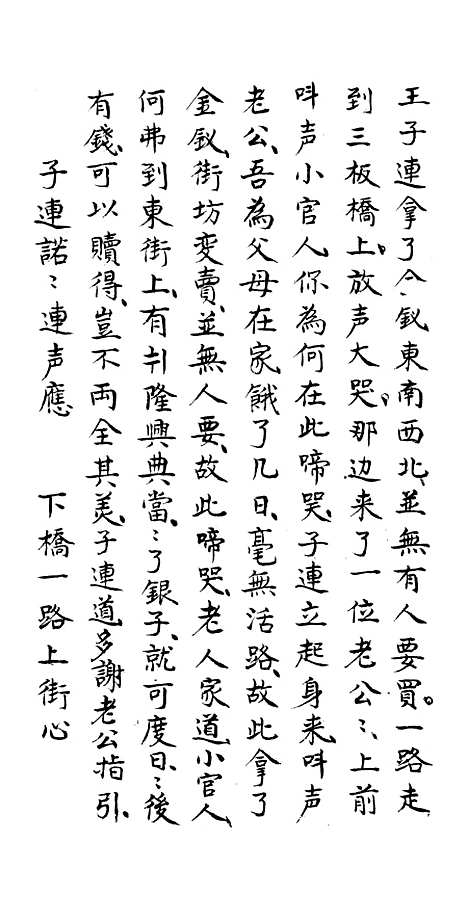 王子連拿了金釵東南西北、並無有人要買。一路走
到三板橋上。放声大哭。那边来了一位老公〻、上前
叫声小官人、你為何在此啼哭、子連立起身来、叫声
老公、吾為父母在家餓了几日、毫無活路、故此拿了
金釵、街坊变賣、並無人要、故此啼哭、老人家道、小官人
何弗到東街上、有隆興典當、〻了銀子、就可度日、〻後
有錢、可以贖得、豈不両全其美、子連道、多謝老公指引、
子連諾〻連声應 下橋一路上街心